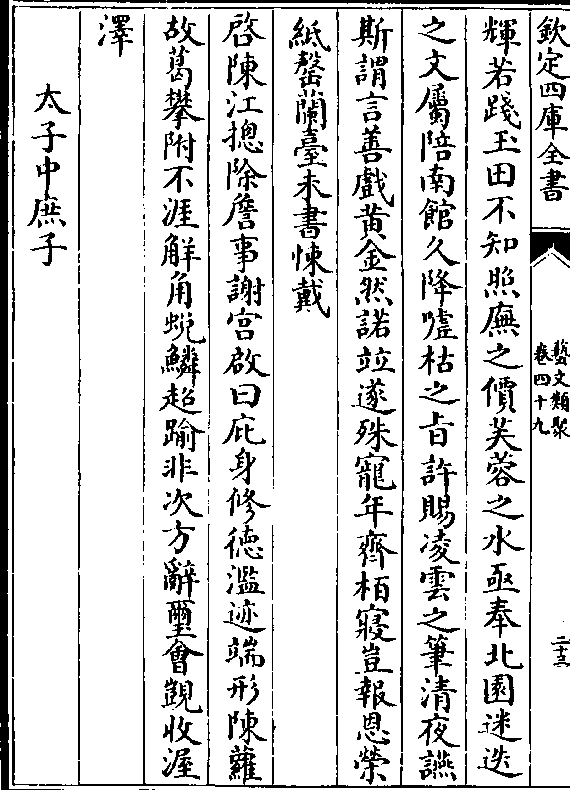 欽定四庫全書
藝文類聚
卷四十九
二十三
輝若踐玉田不知照廡之價芙蓉之水亟奉北園迷迭
之文屬陪南館久降噓枯之旨許賜凌雲之筆清夜讌
斯謂言善戲黄金然諾竝遂殊寵年齊栢寢豈報恩榮
紙罄蘭臺未書悚戴
啓陳江摠除詹事謝宫啟曰庇身修徳濫迹端形陳蘿
故葛攀附不涯觧角蛻鱗超踰非次方辭璽會覬收渥
澤
太子中庶子